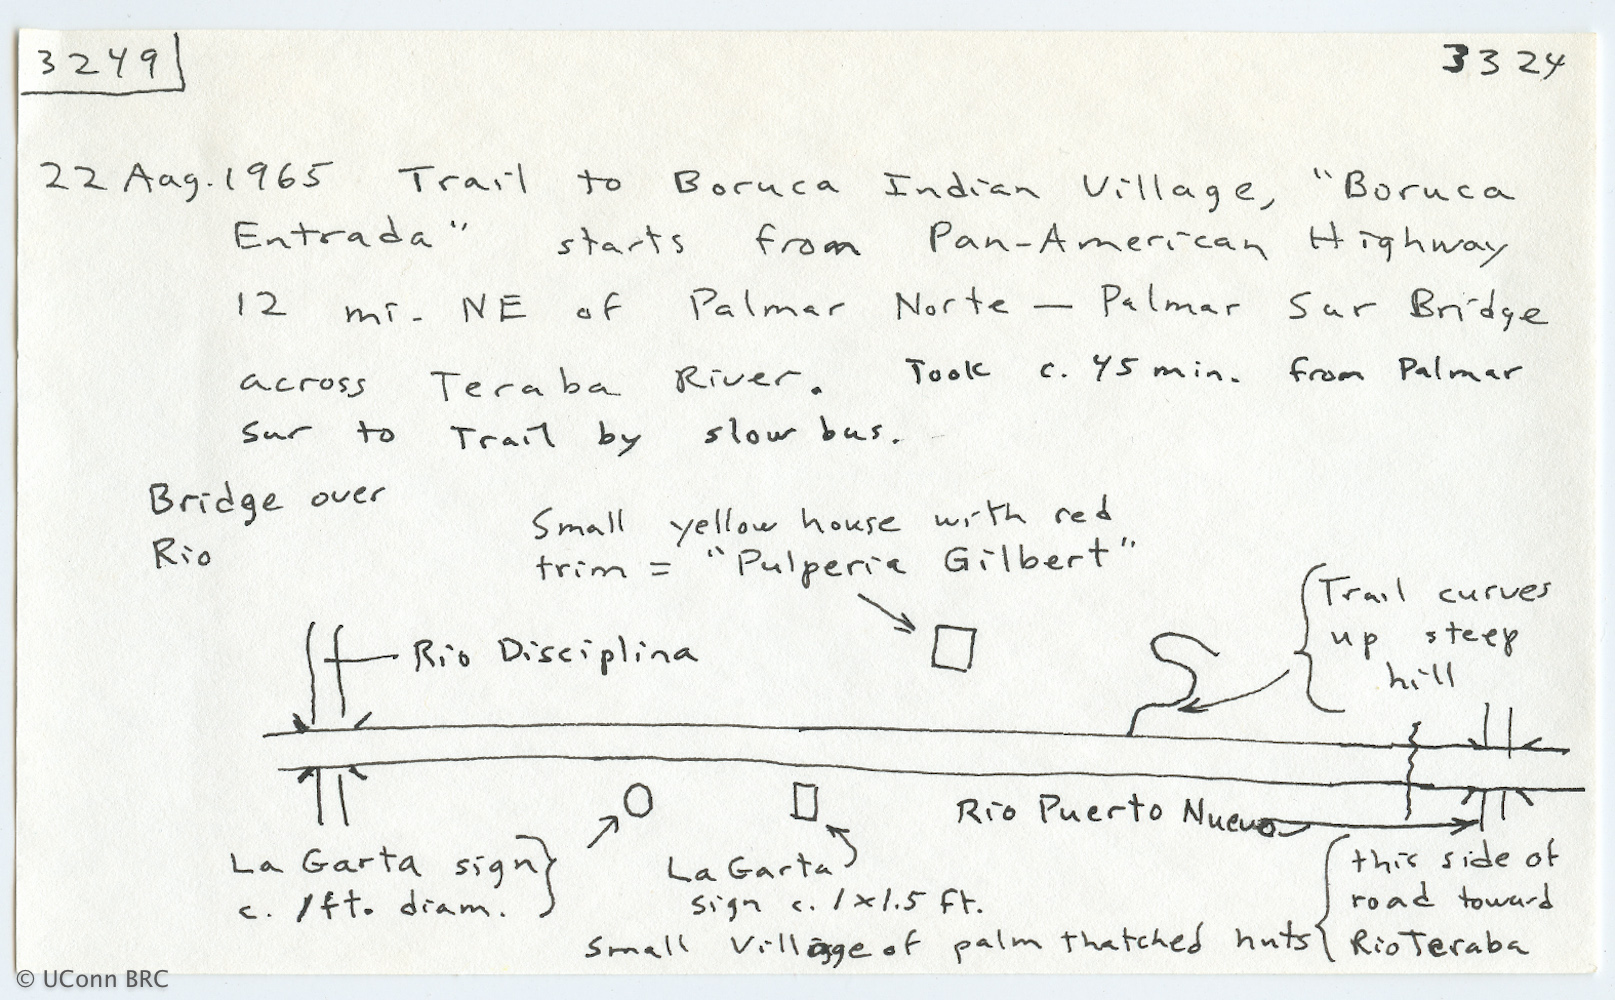 3249
3324
22 Aug. 1965 Trail to Boruca Indian Village, "Boruca
Entrada" starts from Pan-American Highway
12 mi. NE of Palmar Norte — Palmar Sur Bridge
across Teraba River. Took c. 45 min. from Palmar
Sur to Trail by slow bus.
Bridge over
Rio
Small yellow house with red
trim = "Pulperia Gilbert"
Trail curves
up steep
hill
Rio Disciplina
Rio Puerto Nuevo
La Garta sign
c. 1 ft. diam.
La Garta
sign c. 1 x 1.5 ft.
this side of
road toward
Rio Teraba
Small Village of palm thatched huts
© UConn BRC